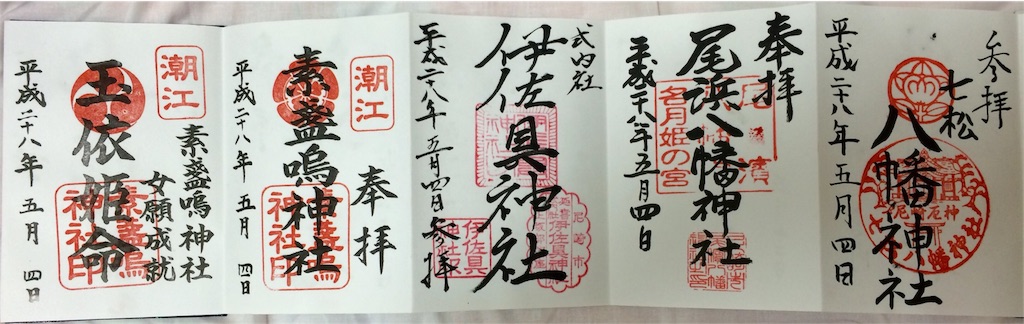 参拝
七松
八幡神社
平成二十八年五月四日
七松八幡神社
奉拝
尾浜八幡神社
平成二十八年五月四日
名月姫の宮
尾濱
式内社
伊佐具神社
平成二十八年五月四日参拝
伊佐具
神社
潮江
奉拝
素盞嗚神社
平成二十八年 五月 四日
素盞嗚
神社印
潮江
素盞嗚神社
女願成就
玉依姫命
平成二十八年 五月 四日
素盞嗚
神社印